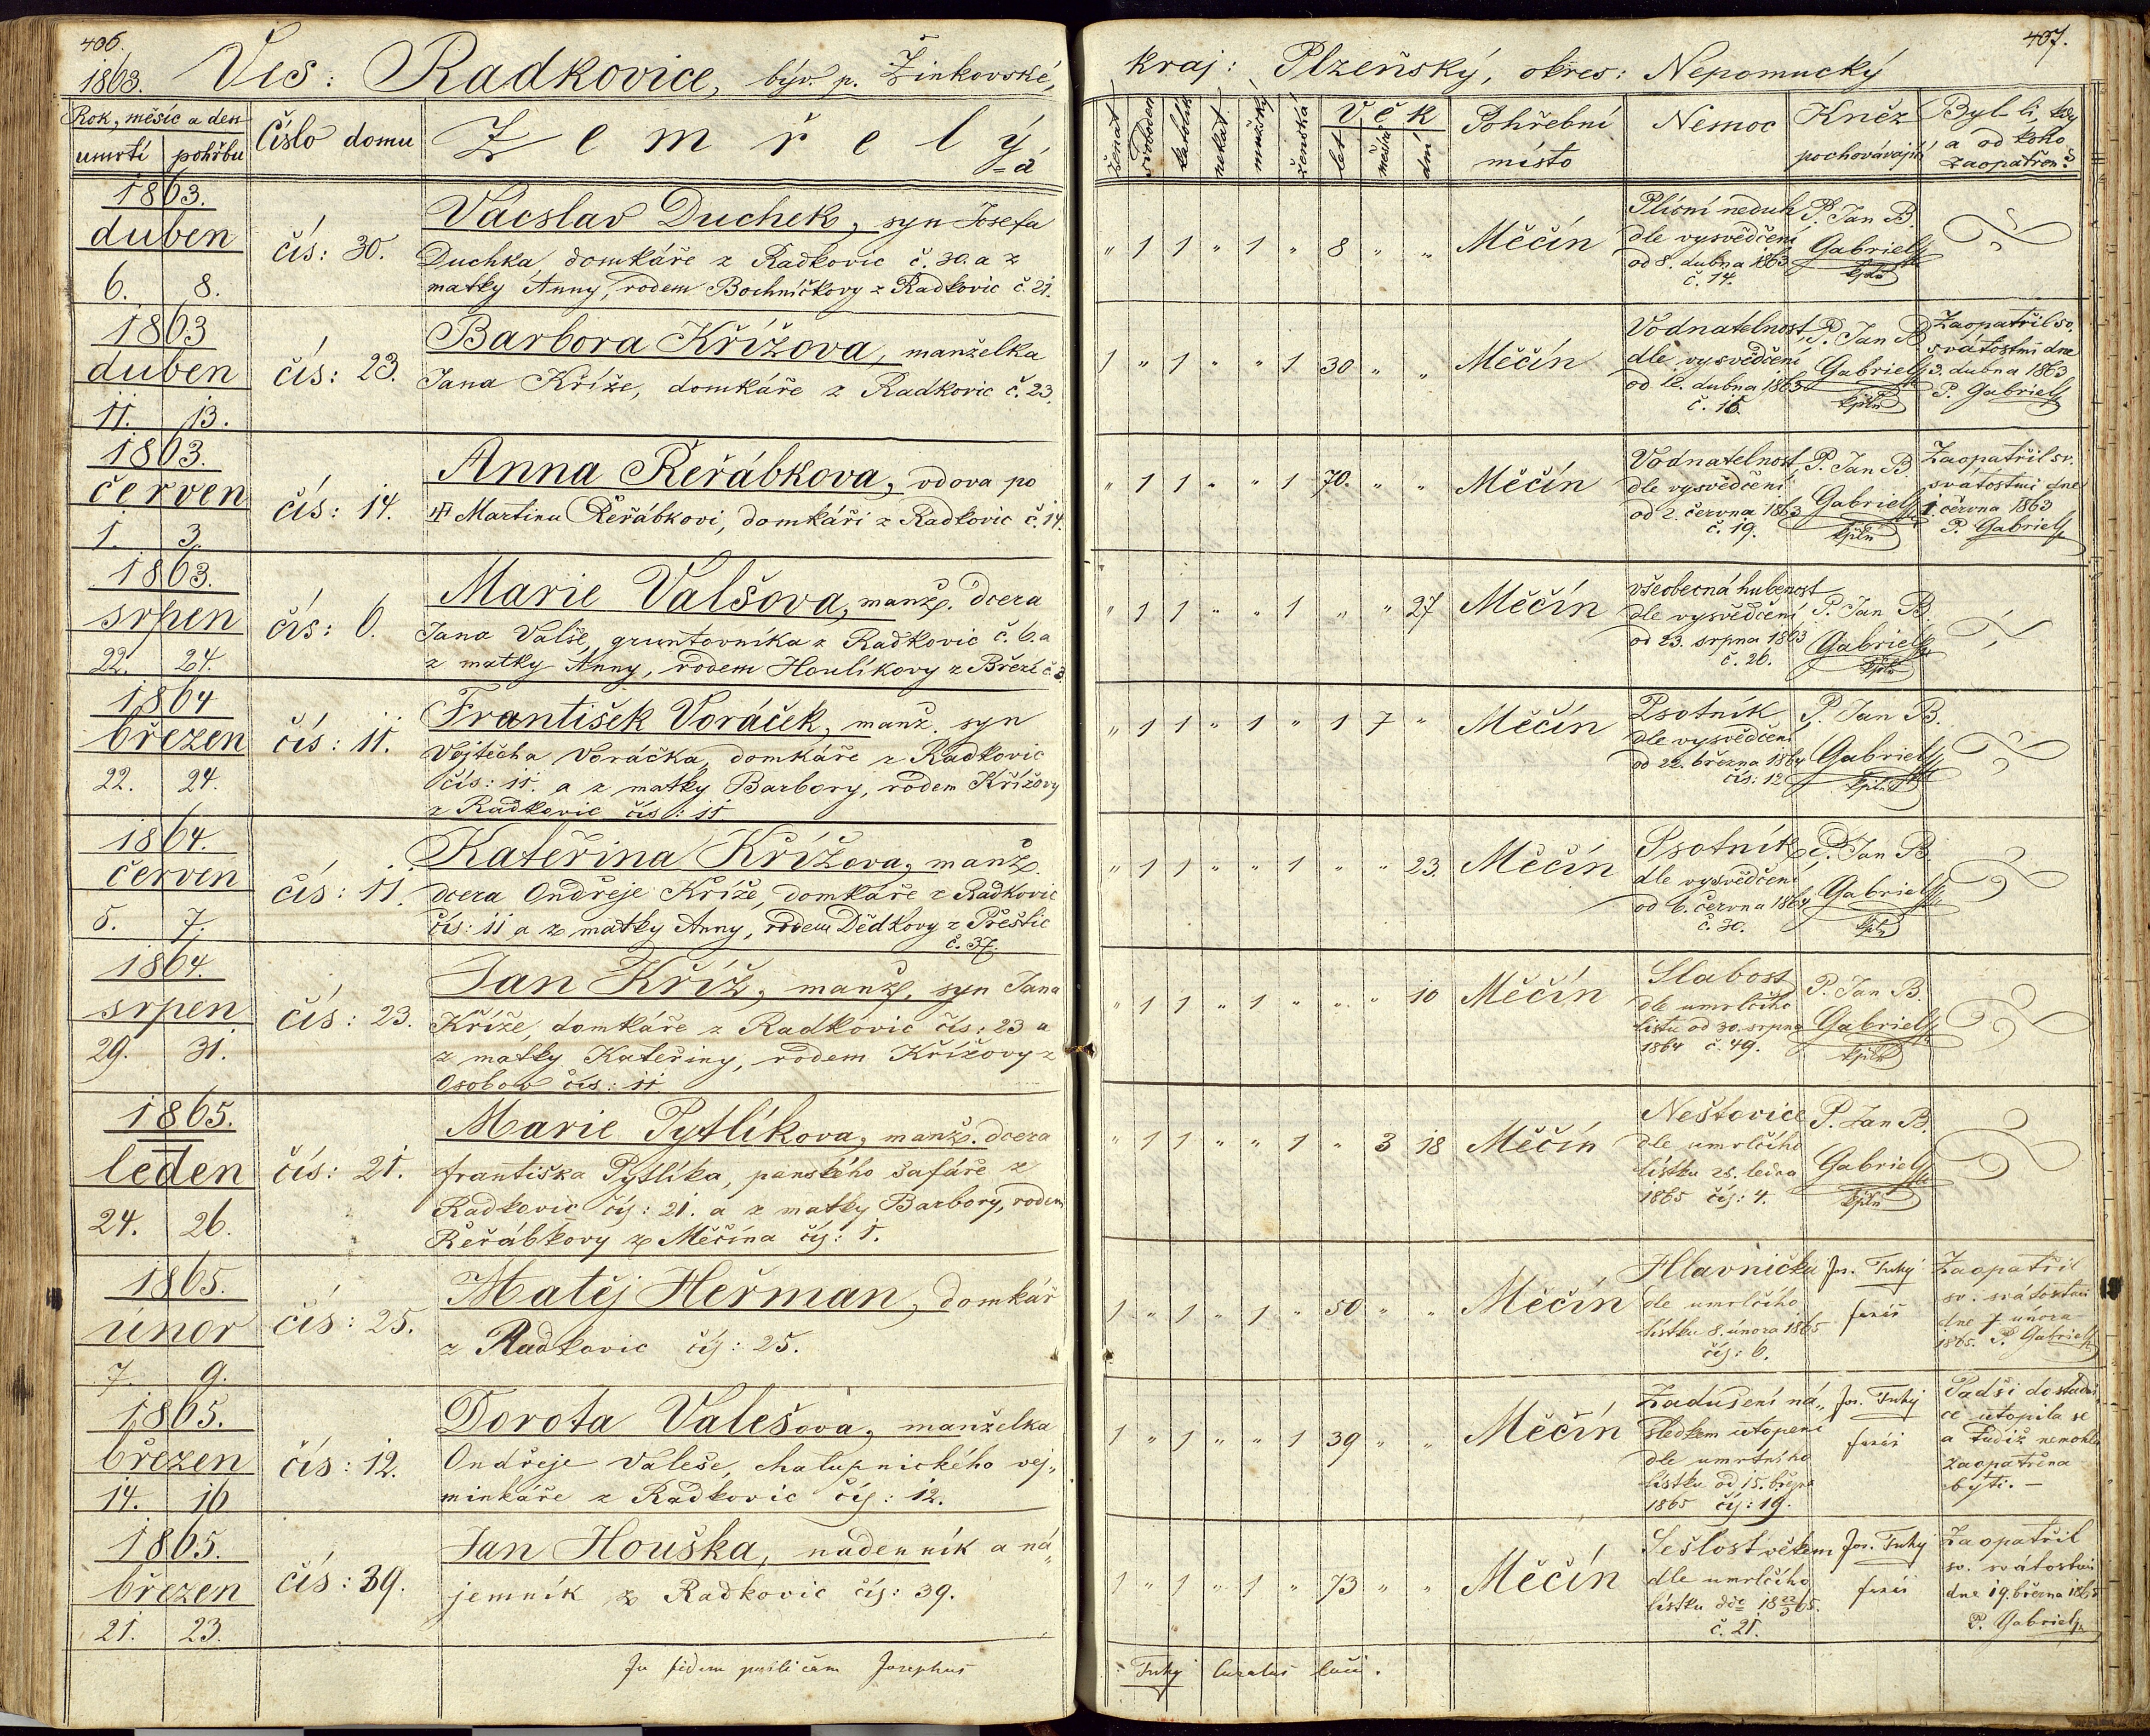 406.
1863. Ves: Radkovice, býv. p. Žinkovské,
Rok, měsíc a den
umrtí pohřbu
Číslo domu
Zemřelý
=á
1863.
duben
6. 8.
čís: 30.
Vácslav Duchek, syn Josefa
Duchka, domkáře z Radkovic č. 30. a z
matky Anny, rodem Bochníčkovy z Radkovic č. 21.
1863
duben
11. 13.
čís: 23.
Barbora Křížova, manželka
Jana Kříže, domkáře z Radkovic č. 23.
1863.
červen
1. 3.
čís: 14.
Anna Řeřábkova, vdova po
Martinu Řeřábkovi, domkáři z Radkovic č. 14.
1863.
srpen
22. 24.
čís: 6.
Marie Valšova, manž. dcera
Jana Valše, gruntovníka z Radkovic č. 6. a
z matky Anny, rodem Houlíkovy z Březí č. 3.
1864
březen
22. 24.
čís: 11.
František Voráček, manž. syn
Vojtěcha Voráčka, domkáře z Radkovic
čís: 11. a z matky Barbory, rodem Křížovy
z Radkovic čís: 11
1864.
červen
5. 7.
čís: 11.
Kateřina Křížova, manž.
dcera Ondřeje Kříže, domkáře z Radkovic
čís: 11 a z matky Anny, rodem Dědkovy z Přeštic
č. 37.
1864.
srpen
29. 31.
čís: 23.
Jan Kříž, manž. syn Jana
Kříže, domkáře z Radkovic čís: 23 a
z matky Kateřiny, rodem Křížovy z
Osobov čís: 11
1865.
leden
24. 26.
čís: 21.
Marie Pytlíkova, manž. dcera
Františka Pytlíka, panského šafáře z
Radkovic čís: 21. a z matky Barbory, rodem
Řeřábkovy z Měčína čís: 1.
1865.
únor
7. 9.
čís: 25.
Matěj Heřman, domkář
z Radkovic čís: 25.
1865.
březen
14. 16
čís: 12.
Dorota Valešova, manželka
Ondřeje Valeše, chalupnického vej„
minkáře z Radkovic čís: 12.
1865.
březen
21. 23.
čís: 39.
Jan Houška, nádenník a ná„
jemník z Radkovic čís: 39.
Josephus
407.
kraj: Plzeňský, okres: Nepomucký
ženat svoboden katolík nekat. mužský ženská
Věk
let měsíců dní
Pohřební
místo
Nemoc
Kněz
pochovávající
Byl-li, kdy
a od koho
zaopatřen?
„ 1 1 „ 1 „ 8 „ „ Měčín
Plicní neduh
dle vysvědčení
od 8. dubna 1863
č. 14.
P. Jan B.
Gabriel
kpln
1 „ 1 „ „ 1 30 „ „ Měčín
Vodnatelnost
dle vysvědčení
od 12. dubna 1863
č. 16.
P. Jan B
Gabriel
kpln
Zaopatřil sv.
svátostmi dne
3. dubna 1863
P. Gabriel
„ 1 1 „ „ 1 70. „ „ Měčín
Vodnatelnost
dle vysvědčení
od 2. června 1863
č. 19.
P. Jan B
Gabriel
kpln
Zaopatřil sv.
svátostmi dne
1. června 1863
P. Gabriel
„ 1 1 „ „ 1 „ „ 27 Měčín
všeobecná hubenost
dle vysvědčení
od 23. srpna 1863
č. 26.
P. Jan B.
Gabriel
kpln
„ 1 1 „ 1 „ 1 7 „ Měčín
Psotník
dle vysvědčení
od 22. března 1864
čís: 12
P. Jan B.
Gabriel
kpln
„ 1 1 „ „ 1 „ „ 23. Měčín
Psotník
dle vysvědčení
od 6. června 1864
č. 30.
P. Jan B.
Gabriel
kpln
„ 1 1 „ 1 „ „ „ 10 Měčín
Slabost
dle umrlčího
listu od 30. srpna
1864 č. 49.
P. Jan B.
Gabriel
kpln
„ 1 1 „ „ 1 „ 3 18 Měčín
Neštovice
dle umrlčího
lístku 25. ledna
1865 čís: 4.
P. Jan B.
Gabriel
kpln
1 „ 1 „ 1 „ 50 „ „ Měčín
Hlavnička
dle umrlčího
lístku 8. února 1865
čís: 6.
Jos. Tuhý
farář
Zaopatřil
sv. svátostmi
dne 7 února
1865. P. Gabriel
1 „ 1 „ „ 1 39 „ „ Měčín
Zadušení ná„
sledkem utopení
dle umrtního
lístku od 15. března
1865 čís: 19.
Jos. Tuhý
farář
Padši do studni„
ce utopila se
a tudíž nemohla
zaopatřena
býti. —
1 „ 1 „ 1 „ 73 „ „ Měčín
Sešlost věkem
dle umrlčího
lístku ddo 18 22/3 65.
č. 21.
Jos. Tuhý
farář
Zaopatřil
sv. svátostmi
dne 19. března 1865
P. Gabriel
Tuhý